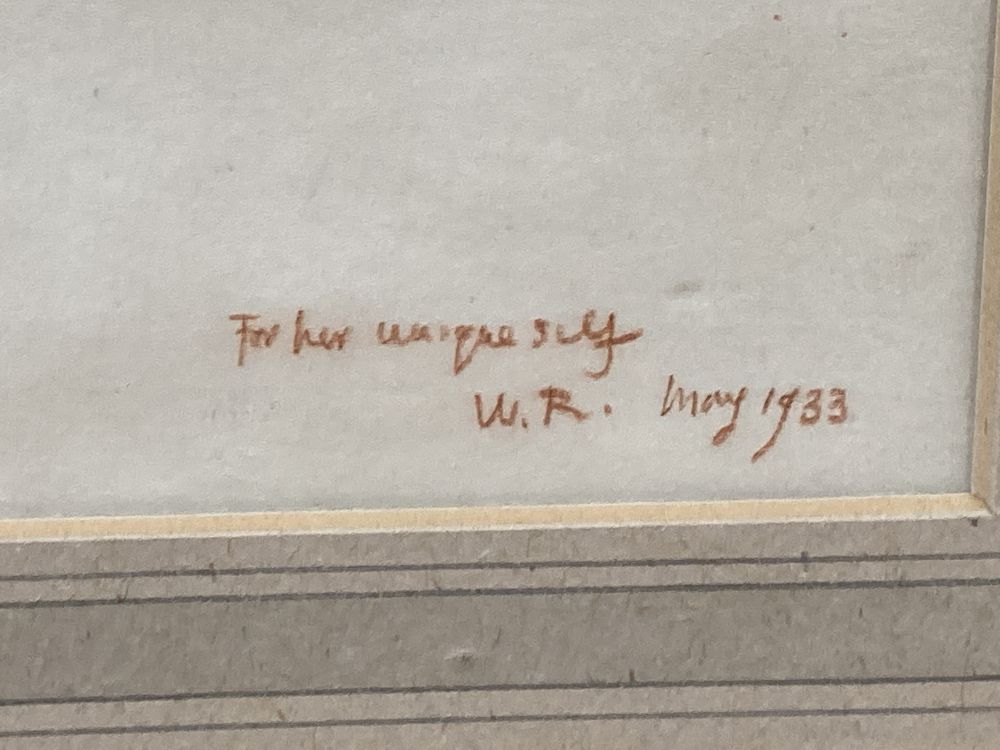 For her unique self
W.R. May 1933